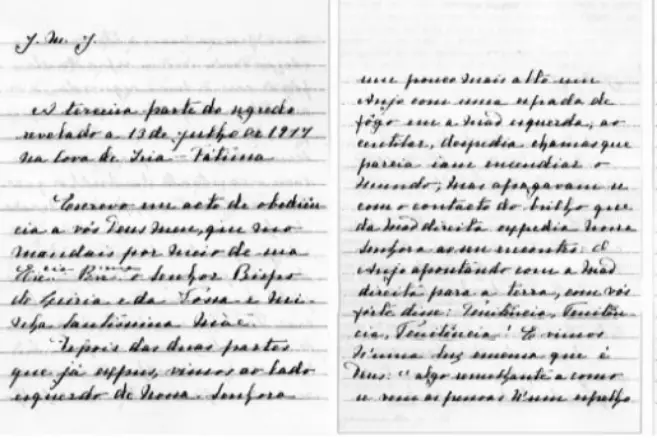 J. M. J.
A terceira parte do segredo
revelado a 13 de julho de 1917
na Cova de Iria - Fátima
Escrevo em acto de obediên
cia a vós Deus meu, que mo
mandais por meio de sua
Ex.cia Rev.ma o Senhor Bispo
de Leiria e da Vossa e mi-
nha Santíssima Mãe.
Depois das duas partes
que já expus, vimos ao lado
esquerdo de Nossa Senhora
um pouco mais alto um
Anjo com uma espada de
fôgo em a mão esquerda; ao
cintilar, despedia chamas que
parecia iam encendiar o
mundo; mas apagavam-se
com o contacto do brilho que
da mão direita expedia Nossa
Senhora ao seu encontro: O
Anjo apontando com a mão
direita para a terra, com vós
forte disse: Penitência, Penitên-
cia, Penitência! E vimos
n'uma luz emensa que é
Deus: "algo semelhante a como
se vêm as pessoas n'um espelho